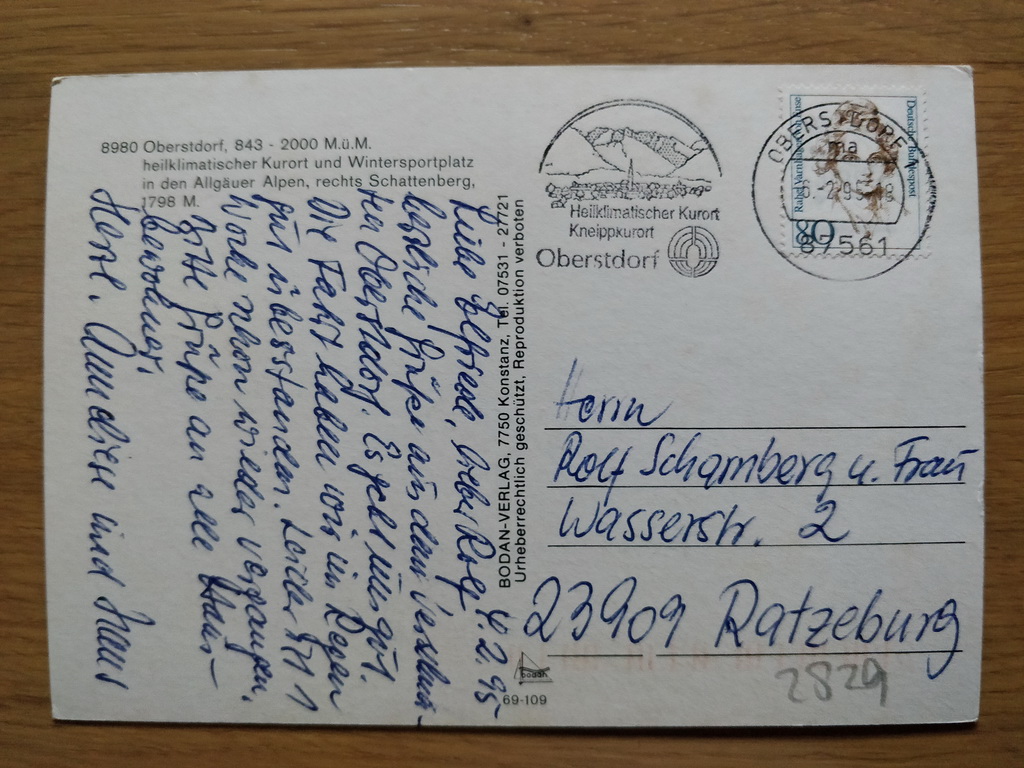 8980 Oberstdorf, 843 - 2000 M.ü.M.
heilklimatischer Kurort und Wintersportplatz
in den Allgäuer Alpen, rechts Schattenberg,
1798 M.
4.2.95
Liebe Elfriede, lieber Rolf
herzliche Grüße aus dem verschnei-
ten Oberstdorf. Es geht uns gut.
Die Fahrt haben wir im Regen
gut überstanden. Leider ist 1
Woche schon wieder vergangen.
Bitte Grüße an alle Haus-
bewohner.
Herzl. Anneliese und Hans
BODAN-VERLAG, 7750 Konstanz, Tel. 07531 - 27721
Urheberrechtlich geschützt, Reproduktion verboten
bodan
69-109
Heilklimatischer Kurort
Kneippkurort
Oberstdorf
Deutsche Bundespost
80
OBERSTDORF
ma
6.-2.95-18
87561
Herrn
Rolf Schamberg u. Frau
Wasserstr. 2
23909 Ratzeburg
2829